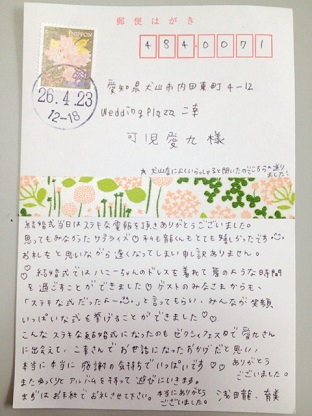 郵便はがき
NIPPON
484-0071
26.4.23
12-18
愛知県犬山市内田東町4-12
Wedding Plaza 二幸
可児愛九様
結婚式当日はステキな電報を頂きありがとうございました。
思ってもみなかったサプライズ♡私も龍くんもとても嬉しかったです。
お礼をと思いながら遅くなってしまい申し訳ありません。
結婚式ではハニーちゃんのドレスを着れて夢のような時間
を過ごすことができました♡ゲストのみなさまからも、
「ステキな式だったよ~」と言ってもらい、みんなが笑顔
いっぱいな式を挙げることができました♡
こんなステキな結婚式になったのもゼクシィフェスタで愛九さん
に出会えて、二幸さんでお世話になったおかげだと思い、
本当に本当に感謝の気持ちでいっぱいです♡ありがとう
ございました。
またゆっくりとアルバムを持って遊びにいきます。
まずはお手紙でお礼させて下さい。本当にありがとう
ございました
龍、有美